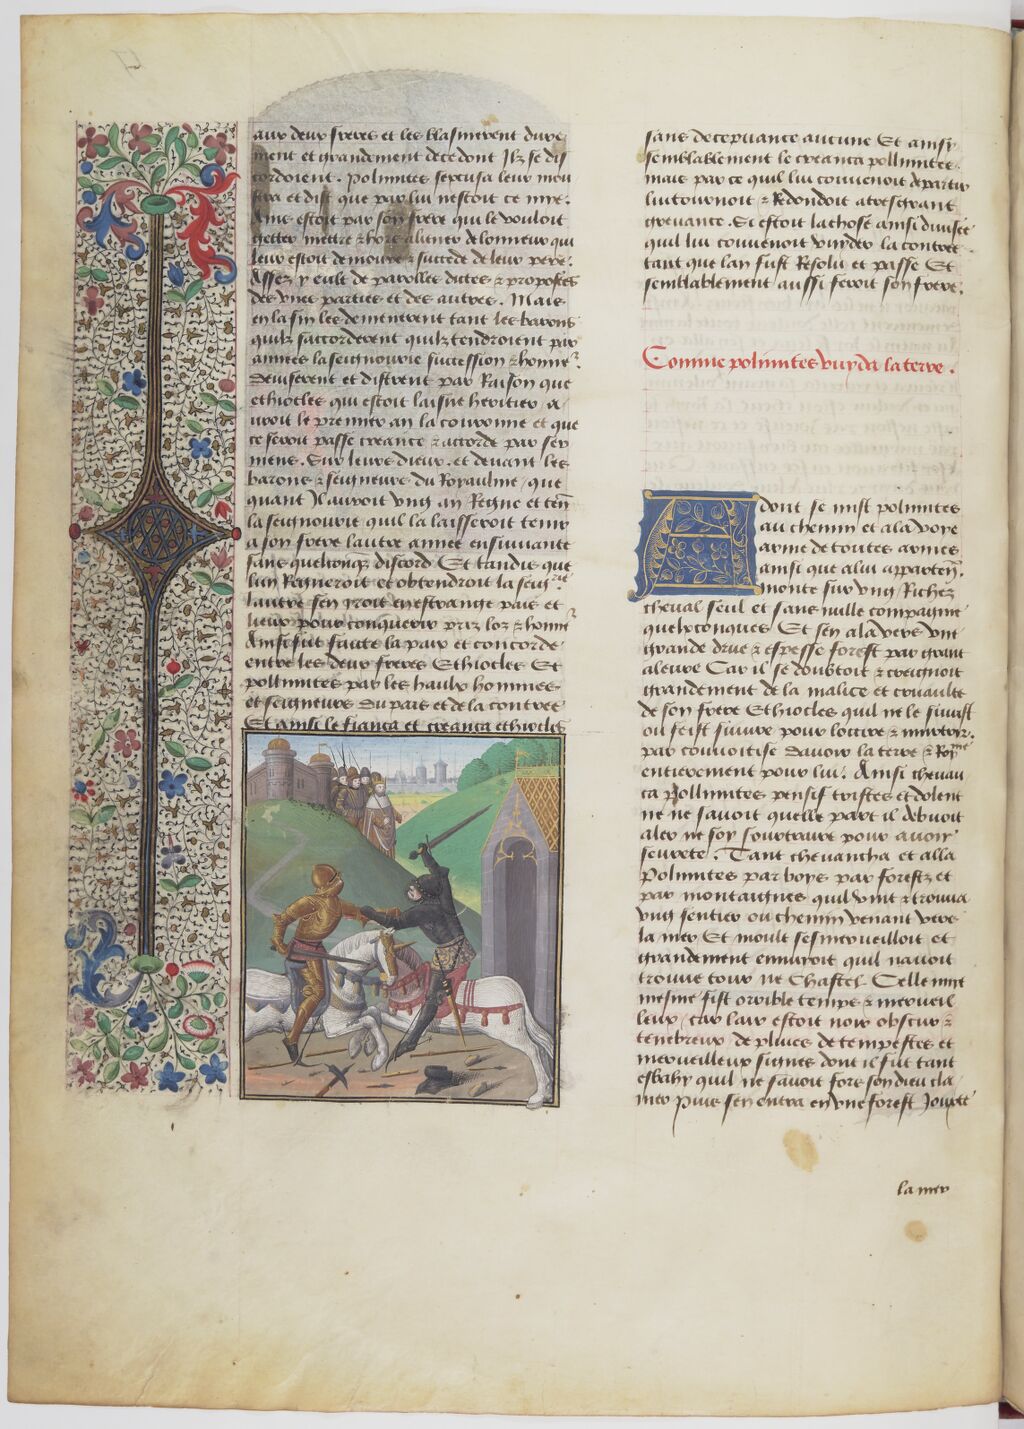 aux deux freres et les blasmerent dure
ment et grandement de ce dont Ilz se dis
cordoient. polimites sepcusa leur mou
stra et dist que par lui nestoit ce mye.
Ains estoit par son frere qui le vouloit
getter mettre & hors de lonneur qui
leur estoit demoure & succede de leur pere.
Assez y eult de parolles dictes & proposees
des unes parties et des autres. Mais
en la fin les demenerent tant les barons
quilz saccorderent quilz tendroient par
annees la seignourie succession & honnr.
deviserent et distrent par Raison que
ethiocles qui estoit laisne heritier a
uroit le premier an la couronne et que
ce seroit passe creance & accorde par ser
mens. Sur leurs dieux. et devant les
barons & seigneurs du Royaulme, que
quant Il auroit ung an Regne et ten
la seignourie quil la laisseroit tenir
a son frere lautre annee ensuivante
sans quelconque discord Et tandis que
lun Regneroit et obtendroit la seigrie
lautre sen yroit en estrange pais et
lieux pour conquerir priz loz & honnr
Ainsi fut faicte la paix et concorde
entre les deux freres Ethiocles Et
pollimites par les haulx hommes
et seigneurs du pais et de la contree
Et ainsi le fianca et creanca ethiocles
sans decepvance aucune Et ainsy
semblablement le creanca pollimites.
mais par ce quil lui convenoit departir
lui tournoit & Redondoit a tresgrant
grevance. Si estoit la chose ainsi divisee
quil lui convenoit vuyder la contree
tant que lan fust Resolu et passe Et
semblablement aussi feroit son frere.
Comme polimites vuyda la terre.
Adont se mist polimites
au chemin et a la voye
arme de toutes armes
ainsi que a lui apparten.
monte sur ung Richez
cheval seul et sans nulle compaignie
quelxconques Et sen ala vers une
grande drue & espesse forest par grant
aleure Car il se doubtoit & creignoit
grandement de la malice et cruaulte
de son frere Ethiocles quil ne le suivist
ou feist suivre pour locirre & murtrir.
par convoitise davoir la terre & Roymẽ
entierement pour lui. Ainsi chevau
ca Pollimites pensif tristes et dolent
ne ne savoit quelle part il debvoit
aler ne soy soustraire pour avoir
seurete. Tant chevaucha et alla
Polimites par boys par forestz et
par montaignes quil vint & trouva
ung sentier ou chemin venant vers
la mer Et moult sesmerveilloit et
grandement ennuyoit quil navoit
trouve tour ne Chastel Celle nuyt
mesme fist orrible temps & merveil
leux, car lair estoit noir obscur &
tenebreux, de pluies de tempestes et
merveilleux signes dont il fut tant
esbahy quil ne savoit fors son dieu cla
mer puis sen entra en une forest Jouxte
la mer